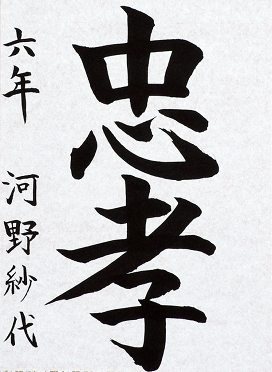 忠孝
六年 河野紗代